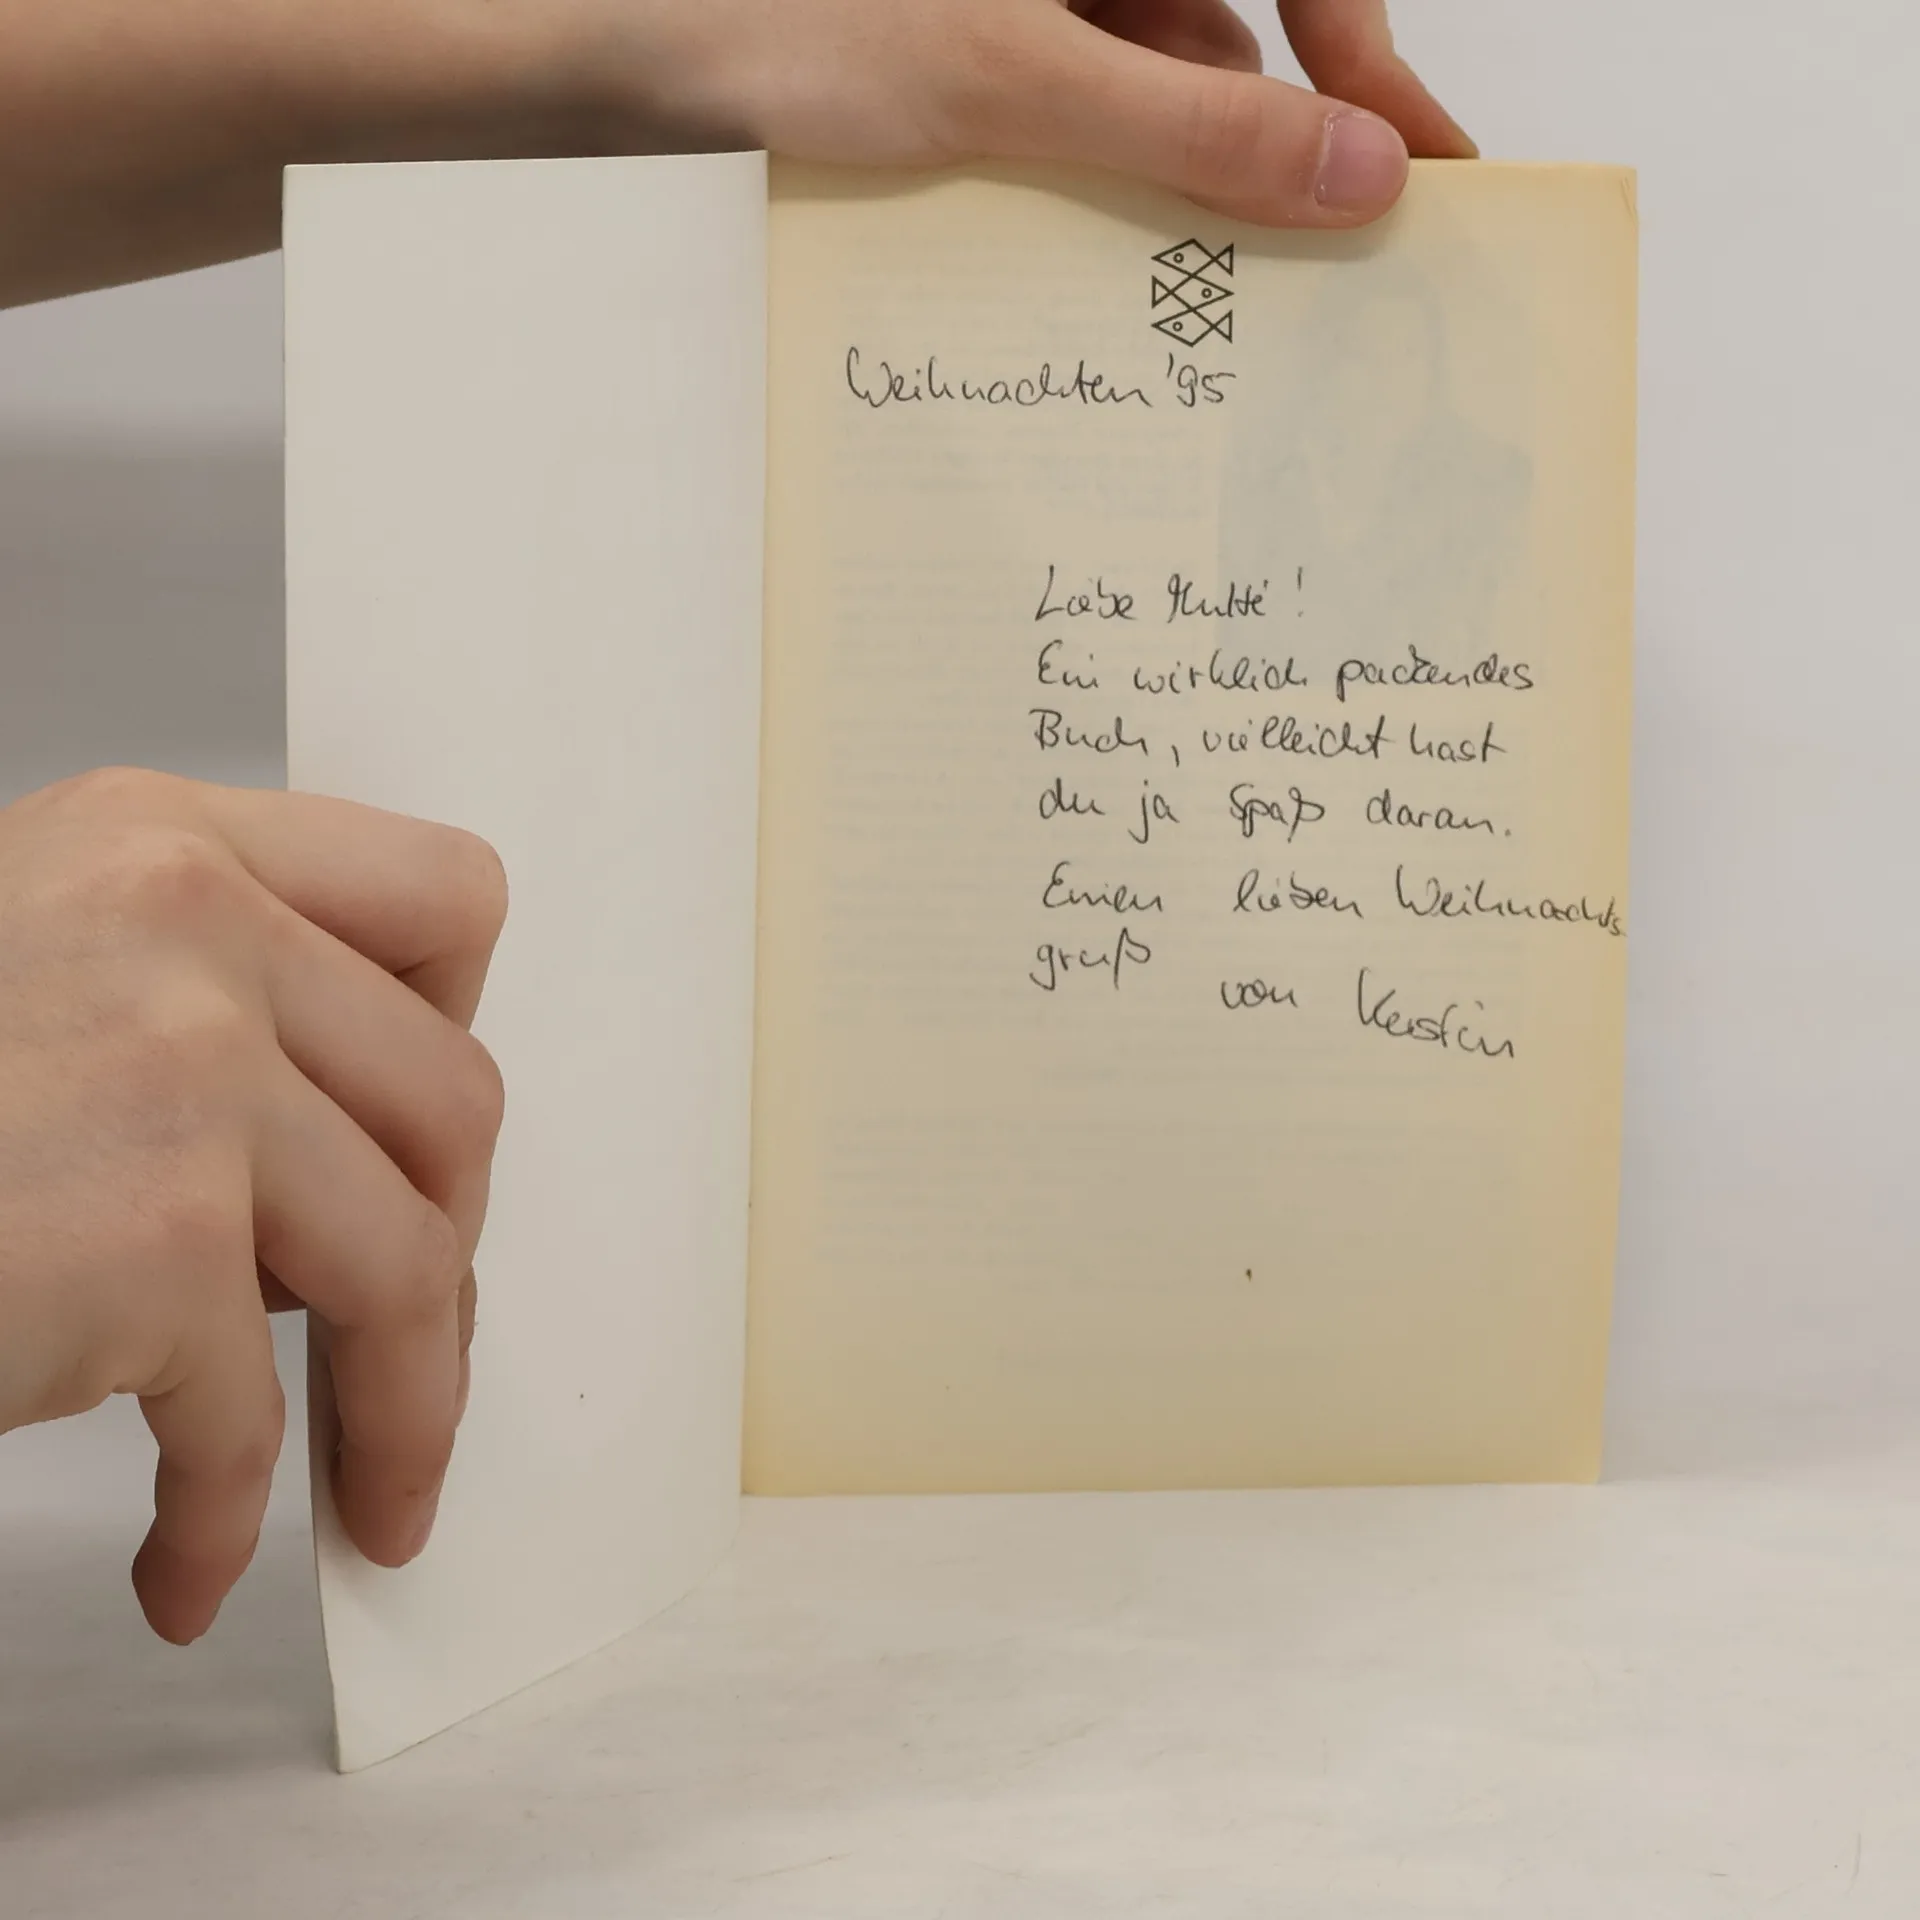 Weihnachten '95
Liebe
Ein wirklich packendes
Buch, vielleicht hast
du ja Spaß daran.
Einen lieben Weihnachts
gruß
von Kerstin